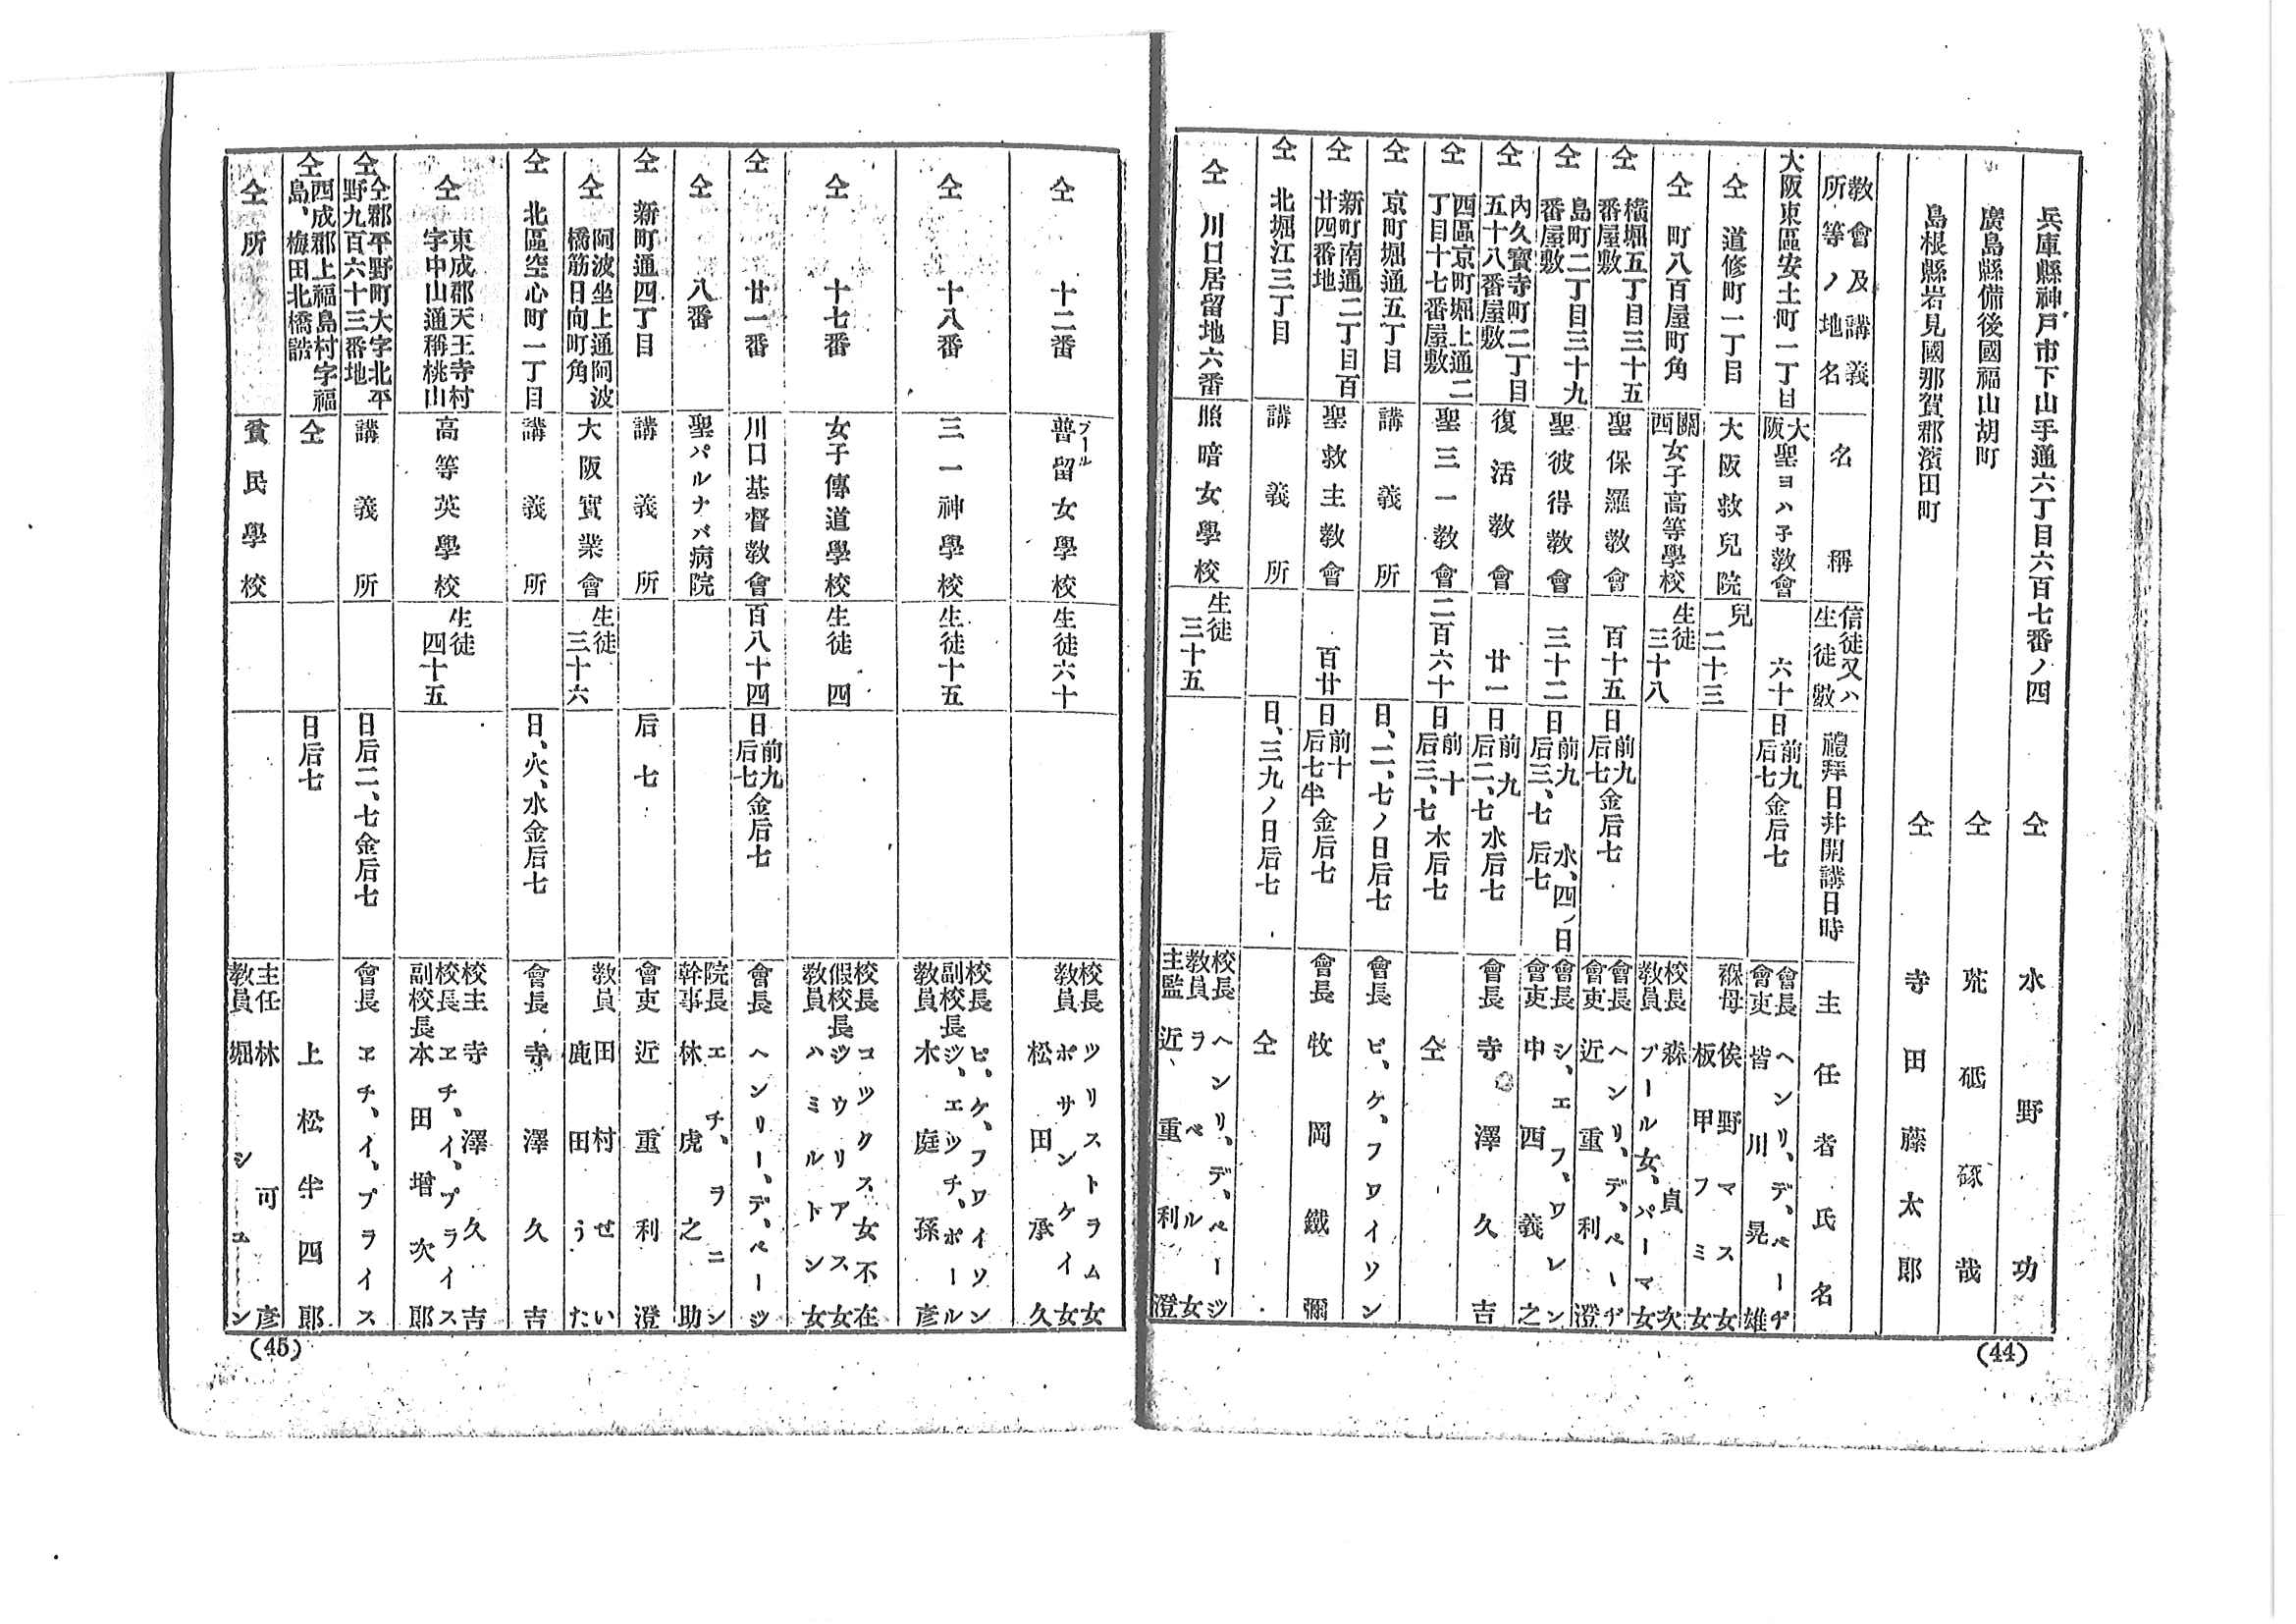 兵庫縣神戸市下山手通六丁目六百七番ノ四 仝 水野功
廣島縣備後國福山胡町 仝 荒砥琢哉
島根縣岩見國那賀郡濱田町 仝 寺田藤太郎
教會及講義所等ノ地名 名稱 信徒又ハ生徒數 禮拜日幷開講日時 主任者氏名
大阪東區安土町二丁目 大阪聖ヨハ子教會 六十 日前九后七金后七 會長ヘンリ、デ、ペーヂ 會吏皆川晃雄
仝 道修町二丁目 大阪救兒院 兒二十三 褓母俟野マスス女 板甲フミ女
仝 町八百屋町角 關西女子高等學校 生徒三十八 校長森貞次 教員プール女、パーマ女
仝 横堀五丁目三十五番屋敷 聖保羅教會 百十五 日前九后七金后七 會長ヘンリ、デ、ペーヂ 會吏近重利澄
仝 島町二丁目三十九番屋敷 聖彼得教會 三十二 日前九后三、七 水、四ノ日后七 會長シ、エフ、ワレン 會吏中西義之
仝 内久寳寺町二丁目五十八番屋敷 復活教會 廿一 日前九后二、七水后七 會長寺澤久吉
仝 西區京町堀上通二丁目十七番屋敷 聖三一教會 二百六十 日前十后三、七木后七 仝
仝 京町堀通五丁目 講義所 日、二、七ノ日后七 會長ピ、ケ、フワイソン
仝 新町南通二丁目百廿四番地 聖救主教會 百廿 日前十后七半金后七 會長牧岡鐵彌
仝 北堀江三丁目 講義所 日、三九ノ日后七 仝
仝 川口居留地六番 照暗女學校 生徒三十五 校長ヘンリ、デ、ページ 教員ヲベル女 主監近重利澄
(44)
仝 十二番 普留女學校 プール 生徒六十 校長ツリストラム女 教員ボサンケイ女 松田承久
仝 十八番 三一神學校 生徒十五 校長ピ、ケ、フワイソン 副校長ジ、エッチ、ポール 教員木庭孫彦
仝 十七番 女子傳道學校 生徒四 校長コックス女不在 假校長ジウリアス女 教員ハミルトン女
仝 廿一番 川口基督教會 百八十四 日前九后七金后七 會長ヘンリー、デ、ページ
仝 八番 聖パルナバ病院 院長エチ、ヲニン 幹事林虎之助
仝 新町通四丁目 講義所 后七 會吏近重利澄
仝 阿波坐上通阿波橋筋日向町角 大阪實業會 生徒三十六 教員田村せい 鹿田うた
仝 北區空心町二丁目 講義所 日、火、水金后七 會長寺澤久吉
仝 東成郡天王寺村字中山通稱桃山 高等英學校 生徒四十五 校主寺澤久吉 校長ヱチ、イ、プライス 副校長本田增次郎
仝 仝郡平野町大字北平野九百六十三番地 講義所 日后二、七金后七 會長ヱチ、イ、プライス
仝 西成郡上福島村字福島、梅田北橋詰 仝 日后七 上松半四郎
仝所 貧民學校 主任林可彦 教員堀シュン
(45)